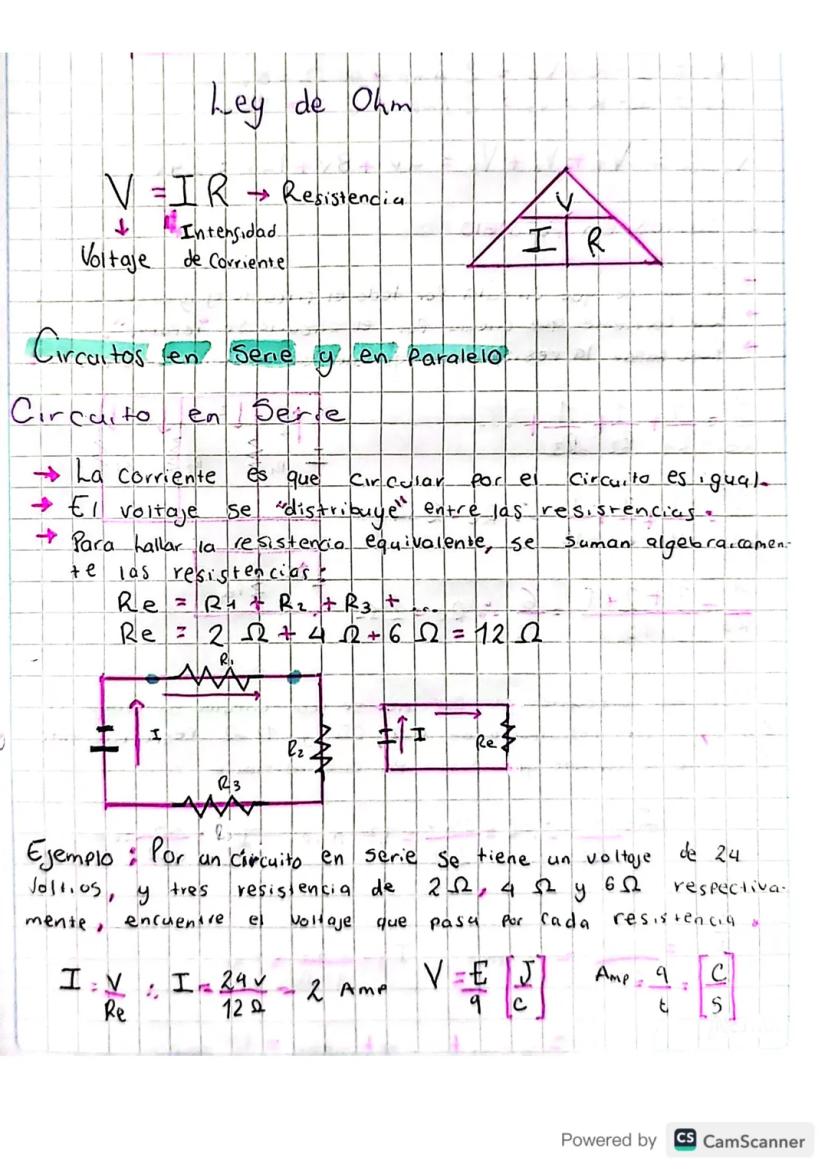 Ley de Ohm
V = I R → Resistencia
↓ Intensidad
Voltaje de Corriente
V
I R
Circuitos en Serie y en Paralelo
Circuito en Serie
→ La corriente es que circular por el circuito es igual.
→ El voltaje se "distribuye" entre las resistencias.
→ Para hallar la resistencia equivalente, se suman algebraicamen-
te las resistencias:
Re = R1 + R2 + R3 + ...
Re = 2 Ω + 4 Ω + 6 Ω = 12 Ω
R1
I
R2
R3
I
Re
Ejemplo: Por un circuito en serie se tiene un voltaje de 24
voltios, y tres resistencia de 2Ω, 4 Ω y 6Ω respectiva-
mente, encuentre el voltaje que pasa por cada resistencia.
I = V/Re ∴ I = 24v/12 Ω = 2 Amp V = E/q [J/C] Amp = q/t = [C/S]
Powered by CS CamScanner